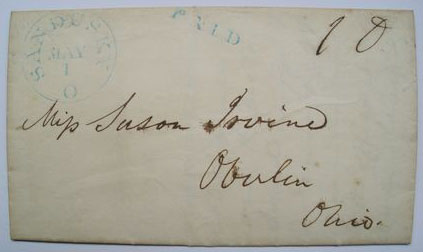 SANDUSKY
MAY
1
O
PAID
10
Miss Susan Irvine
Oberlin
Ohio.